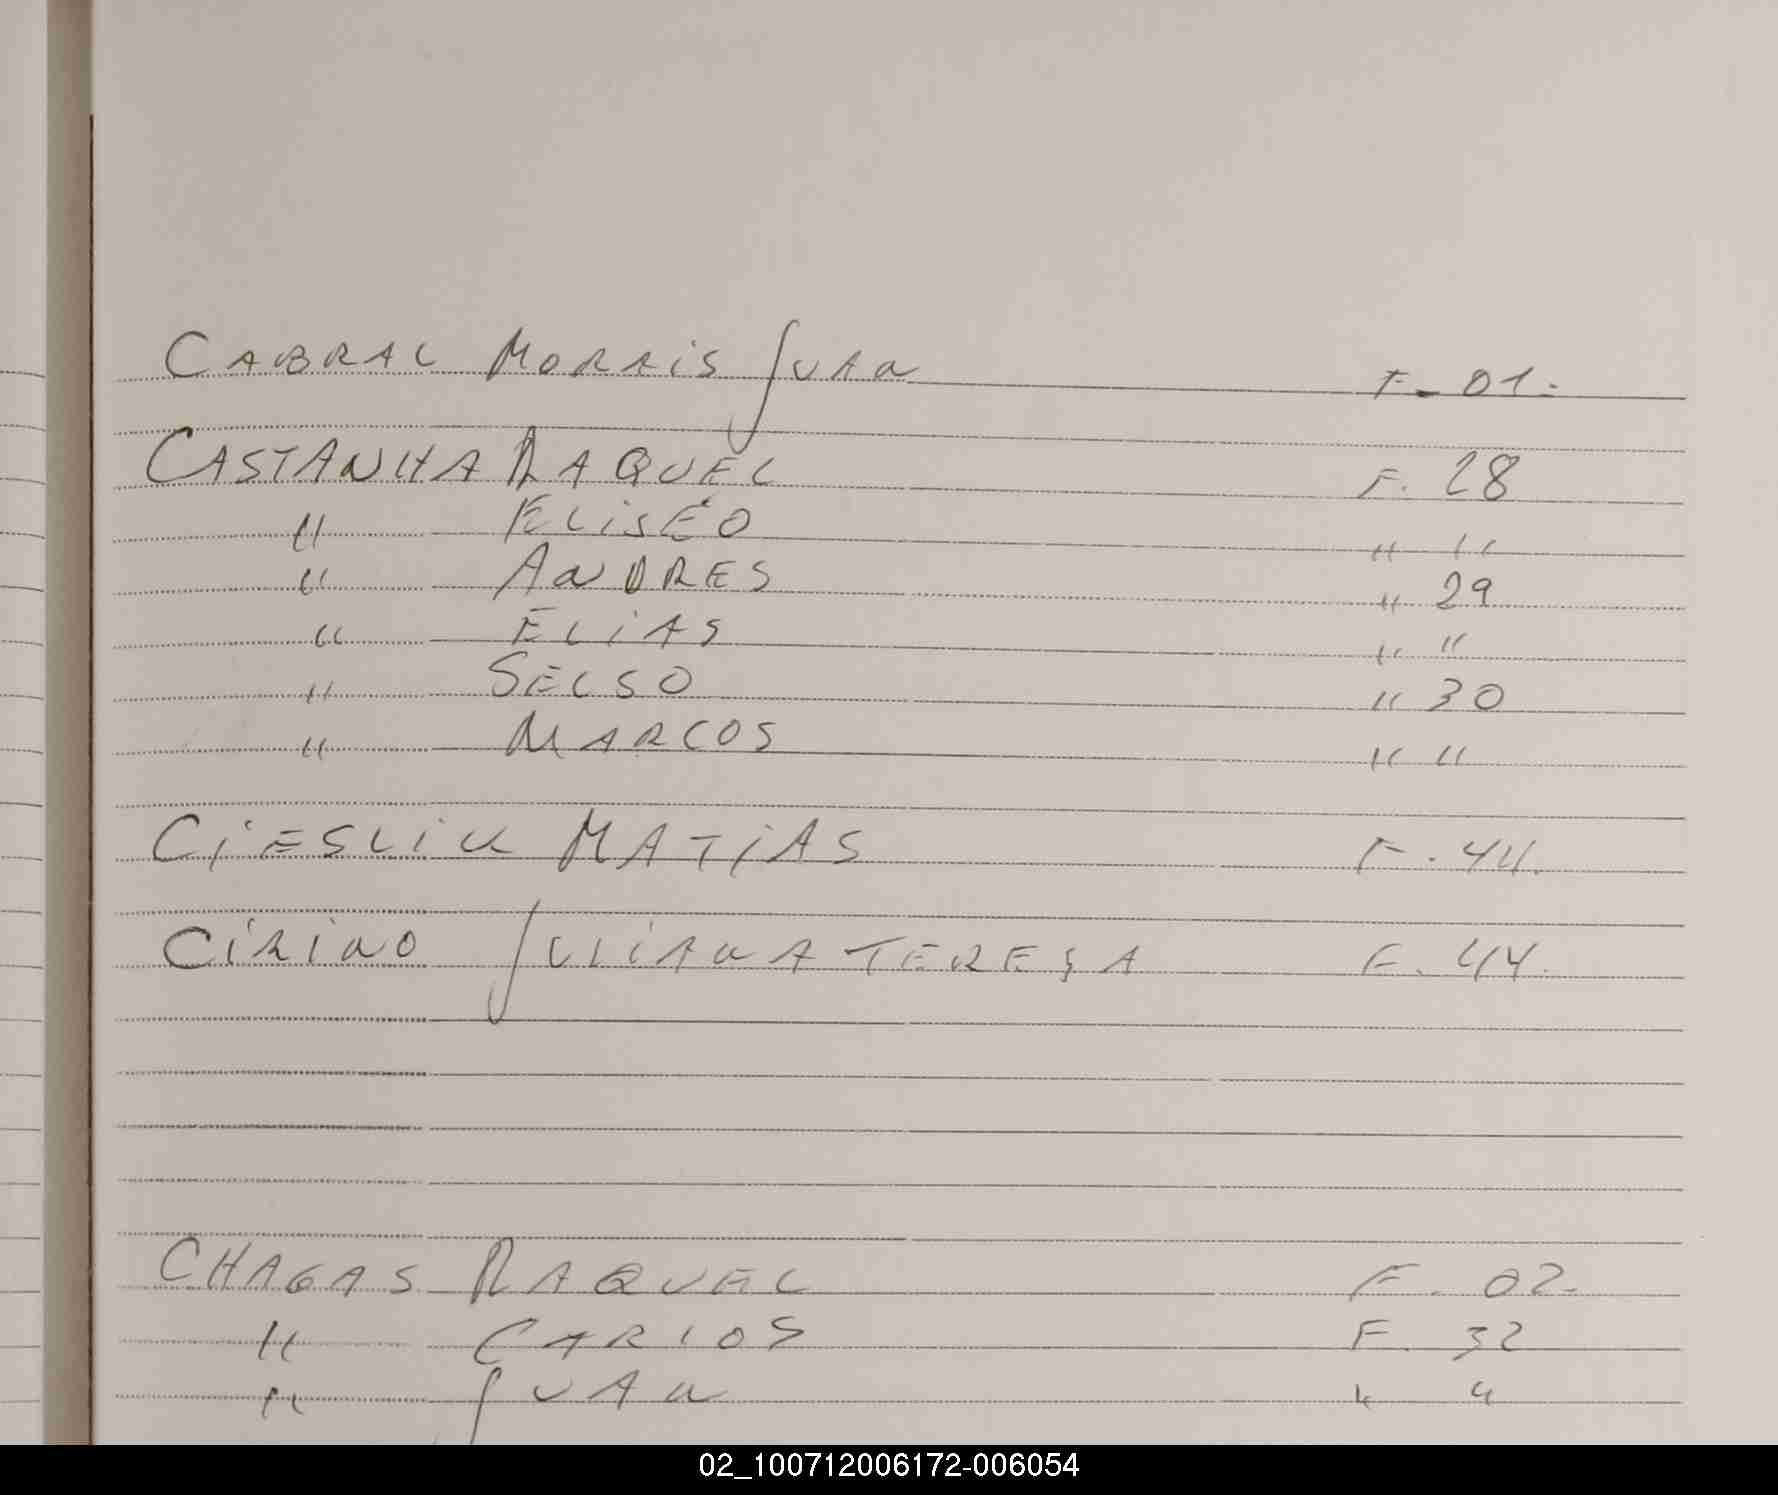 CABRAL MORAIS JUAN F. 01.
CASTANHA RAQUEL F. 28
" ELISÉO " "
" ANDRES " 29
" ELIAS " "
" SELSO " 30
" MARCOS " "
CIESLIK MATIAS F. 44.
CIRINO JULIANA TERESA F. 44.
CHAGAS RAQUEL F. 02.
" CARLOS F. 32
" JUAN " "
02_100712006172-006054